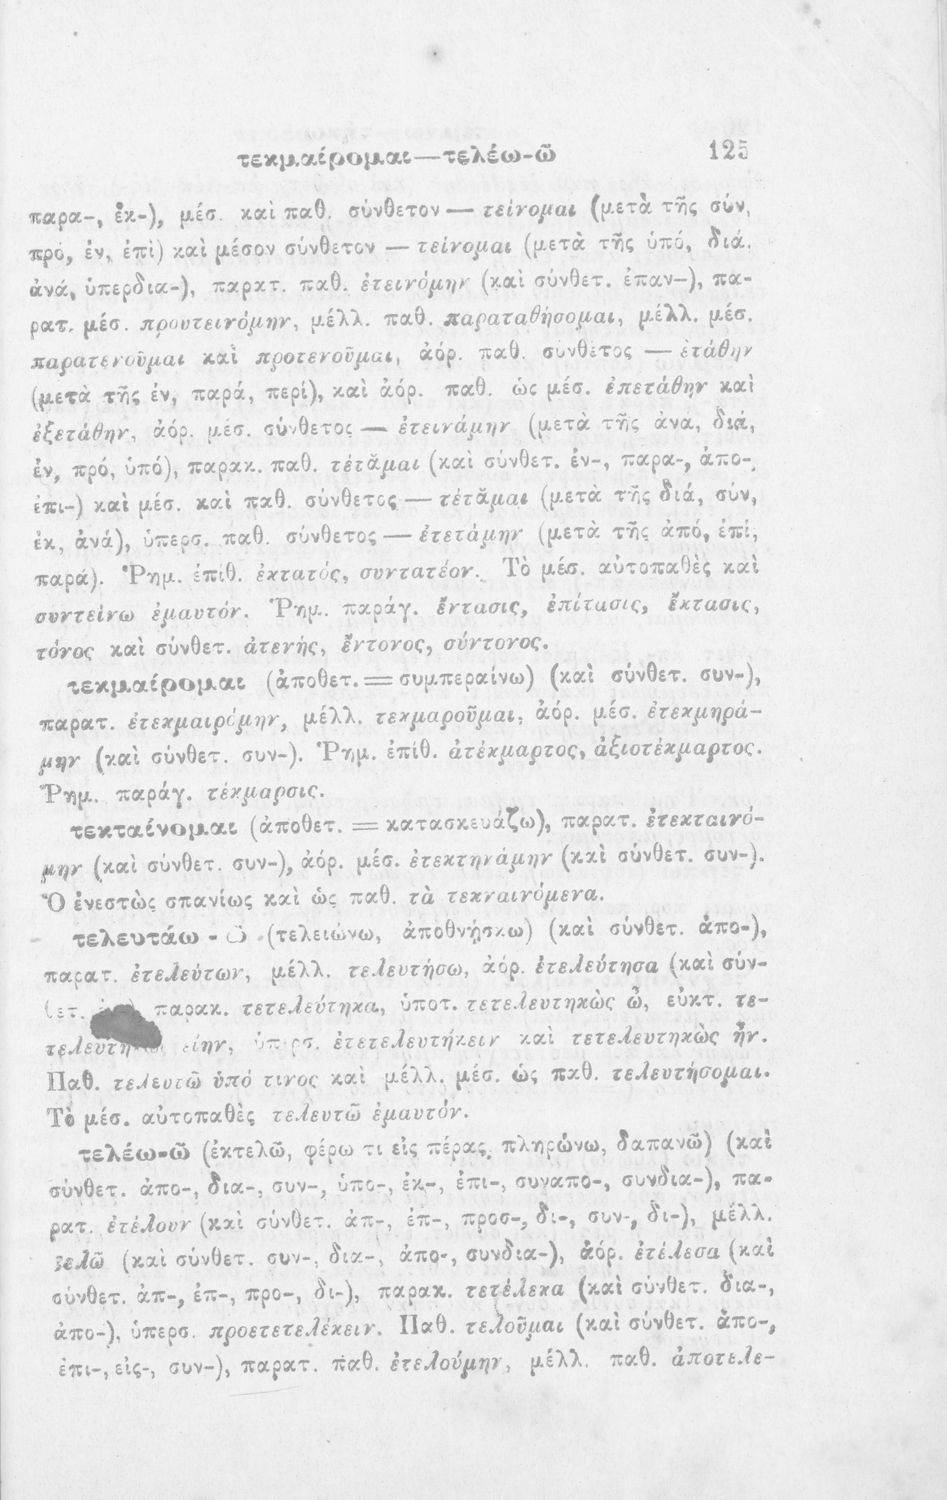 τεκμαίρομαι—τελέω-ῶ 125
παρα-, ἐκ-), μέσ. καὶ παθ. σύνθετον — τείνομαι (μετὰ τῆς σύν,
πρό, ἐν, ἐπὶ) καὶ μέσον σύνθετον — τείνομαι (μετὰ τῆς ὑπό, διά,
ἀνά, ὑπερδια-), παρατ. παθ. ἐτεινόμην (καὶ σύνθετ. ἐπαν-), πα-
ρατ. μέσ. προυτεινόμην, μέλλ. παθ. παραταθήσομαι, μέλλ. μέσ.
παρατενοῦμαι καὶ προτενοῦμαι, ἀόρ. παθ. σύνθετος — ἐτάθην
(μετὰ τῆς ἐν, παρά, περί), καὶ ἀόρ. παθ. ὡς μέσ. ἐπετάθην καὶ
ἐξετάθην, ἀόρ. μέσ. σύνθετος — ἐτεινάμην (μετὰ τῆς ἀνα, διά,
ἐν, πρό, ὑπό), παρακ. παθ. τέτᾰμαι (καὶ σύνθετ. ἐν-, παρα-, ἀπο-,
ἐπι-) καὶ μέσ. καὶ παθ. σύνθετος — τέτᾰμαι (μετὰ τῆς διά, σύν,
ἐκ, ἀνά), ὑπερσ. παθ. σύνθετος — ἐτετάμην (μετὰ τῆς ἀπό, ἐπί,
παρά). Ῥημ. ἐπίθ. ἐκτατός, συντατέον. Τὸ μέσ. αὐτοπαθὲς καὶ
συντείνω ἐμαυτόν. Ῥημ. παράγ. ἔντασις, ἐπίτασις, ἔκτασις,
τόνος καὶ σύνθετ. ἀτενής, ἔντονος, σύντονος.
τεκμαίρομαι (ἀποθετ.=συμπεραίνω) (καὶ σύνθετ. συν-),
παρατ. ἐτεκμαιρόμην, μέλλ. τεκμαροῦμαι, ἀόρ. μέσ. ἐτεκμηρά-
μην (καὶ σύνθετ. συν-). Ῥημ. ἐπίθ. ἀτέκμαρτος, ἀξιοτέκμαρτος.
Ῥημ. παράγ. τέκμαρσις.
τεκταίνομαι (ἀποθετ. = κατασκευάζω), παρατ. ἐτεκταινό-
μην (καὶ σύνθετ. συν-), ἀόρ. μέσ. ἐτεκτηνάμην (καὶ σύνθετ. συν-).
Ὁ ἐνεστὼς σπανίως καὶ ὡς παθ. τὰ τεκναινόμενα.
τελευτάω - ῶ (τελειώνω, ἀποθνήσκω) (καὶ σύνθετ. ἀπο-),
παρατ. ἐτελεύτων, μέλλ. τελευτήσω, ἀόρ. ἐτελεύτησα (καὶ σύν-
θετ. παρακ. τετελεύτηκα, ὑποτ. τετελευτηκὼς ὦ, εὐκτ. τε-
εἴην, ὑπερσ. ἐτετελευτήκειν καὶ τετελευτηκὼς ἦν.
Παθ. τελευτῶ ὑπό τινος καὶ μέλλ. μέσ. ὡς παθ. τελευτήσομαι.
Τὸ μέσ. αὐτοπαθὲς τελευτῶ ἐμαυτόν.
τελέω-ῶ (ἐκτελῶ, φέρω τι εἰς πέρας, πληρώνω, δαπανῶ) (καὶ
σύνθετ. ἀπο-, δια-, συν-, ὑπο-, ἐκ-, ἐπι-, συναπο-, συνδια-), πα-
ρατ. ἐτέλουν (καὶ σύνθετ. ἀπ-, ἐπ-, προσ-, δι-, συν-, δι-), μέλλ.
τελῶ (καὶ σύνθετ. συν-, δια-, ἀπο-, συνδια-), ἀόρ. ἐτέλεσα (καὶ
σύνθετ. ἀπ-, ἐπ-, προ-, δι-), παρακ. τετέλεκα (καὶ σύνθετ. δια-,
ἀπο-), ὑπερσ. προετετελέκειν. Παθ. τελοῦμαι (καὶ σύνθετ. ἀπο-,
ἐπι-, εἰς-, συν-), παρατ. παθ. ἐτελούμην, μέλλ. παθ. ἀποτελε-